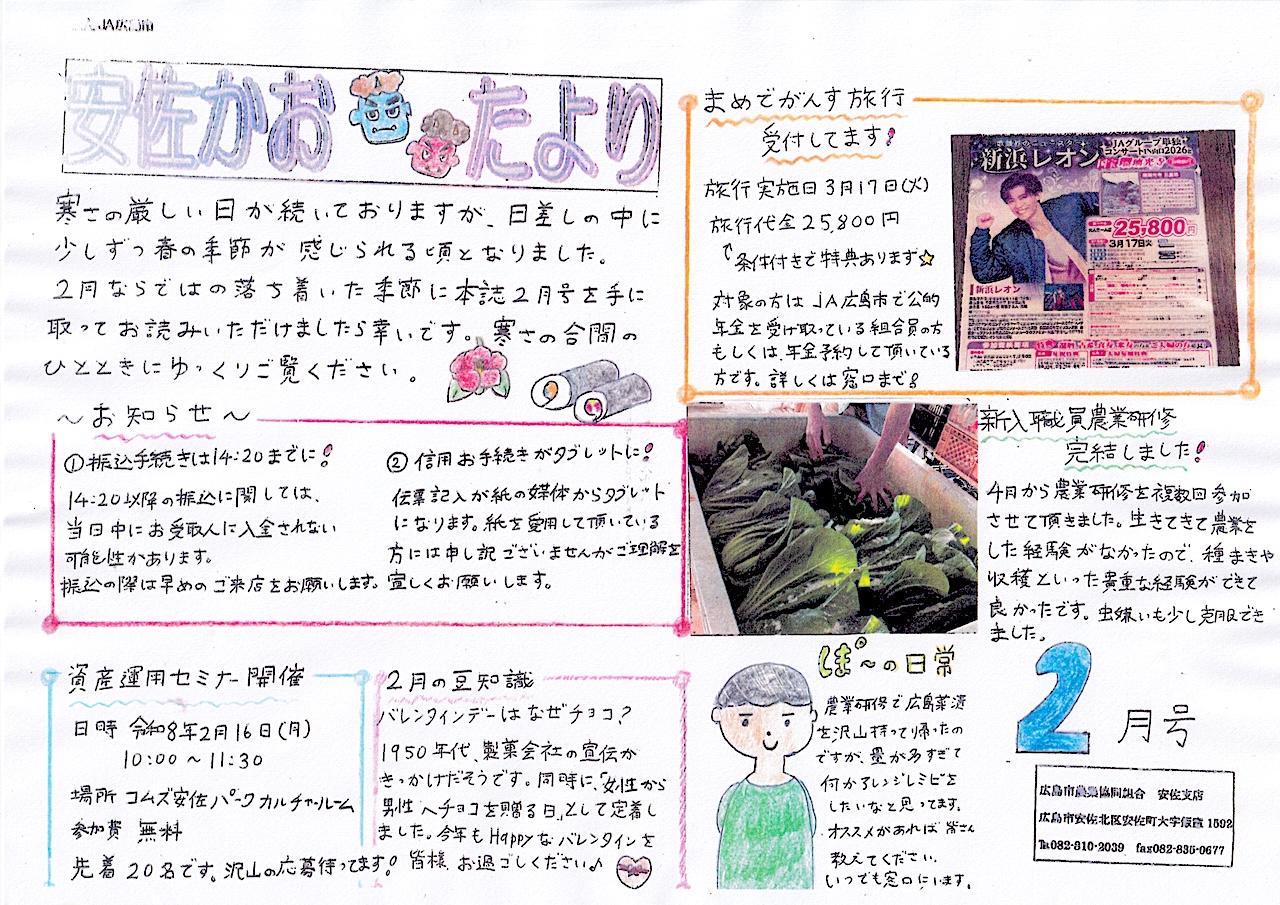 安佐かおたより
寒さの厳しい日が続いておりますが、日差しの中に
少しずつ春の季節が感じられる頃となりました。
2月ならではの落ち着いた季節に本誌2月号を手に
取ってお読みいただけましたら幸いです。寒さの合間の
ひとときにゆっくりご覧ください。
まめでがんす旅行
受付してます!
旅行実施日3月17日(火)
旅行代金25,800円
条件付きで特典あります☆
対象の方はJA広島市で公的
年金を受け取っている組合員の方
もしくは、年金予約して頂いている
方です。詳しくは窓口まで!
新浜レオン
JAグループ単独
コンサートIN山口2026
25,800円
3月17日火
新浜レオン
～お知らせ～
①振込手続きは14:20までに!
14:20以降の振込に関しては、
当日中にお受取人に入金されない
可能性があります。
振込の際は早めのご来店をお願いします。
②信用お手続きがタブレットに!
伝票記入が紙の媒体からタブレット
になります。紙を愛用して頂いている
方には申し訳ございませんがご理解を
宜しくお願いします。
新入職員農業研修
完結しました!
4月から農業研修を複数回参加
させて頂きました。生きてきて農業を
した経験がなかったので、種まきや
収穫といった貴重な経験ができて
良かったです。虫嫌いも少し克服でき
ました。
資産運用セミナー開催
日時 令和8年2月16日(月)
10:00～11:30
場所 コムズ安佐パークカルチャールーム
参加費 無料
先着20名です。沢山の応募待ってます!
2月の豆知識
バレンタインデーはなぜチョコ?
1950年代、製菓会社の宣伝が
きっかけだそうです。同時に、「女性から
男性へチョコを贈る日」として定着し
ました。今年もHappyなバレンタインを
皆様、お過ごしください♪
ぽ～の日常
農業研修で広島菜漬
を沢山持って帰ったの
ですが、量が多すぎて
何かアレンジレシピを
したいなと思ってます。
オススメがあれば皆さん
教えてください。
いつでも窓口にいます。
2月号
広島市農業協同組合 安佐支店
広島市安佐北区安佐町大字飯室1592
℡082-810-2039 fax082-835-0677